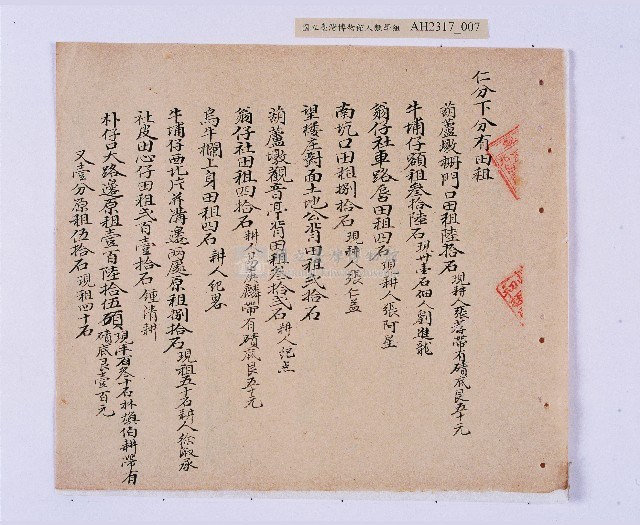 國立臺灣博物館人類學組 AH2317_007
仁分下分有田租
葫蘆墩柵門口田租陸拾石 現耕人張 帶有磧底艮五十元
牛埔仔額租叁拾陸石 現廿壹石佃人劉進龍
翁仔社車路唇田租四石 現耕人張阿星
南坑口田租捌拾石 現耕人張仁益
望樓庄對面土地公背田租貳拾石
葫蘆墩觀音亭背田租叁拾貳石 耕人紀点
翁仔社田租四拾石 耕人 麟帶有磧底艮五十元
烏牛欄上身田租四石 耕人紀畧
牛埔仔西北片莊溝邊両處原租捌拾石 現租五十石耕人徐 承
社皮田心仔田租弍百壹拾石 鍾清耕
朴仔口大路邊原租壹百陸拾伍碩 現 石林旗伯耕帶有磧底艮壹百元
又壹分原租伍拾石 現租四十石